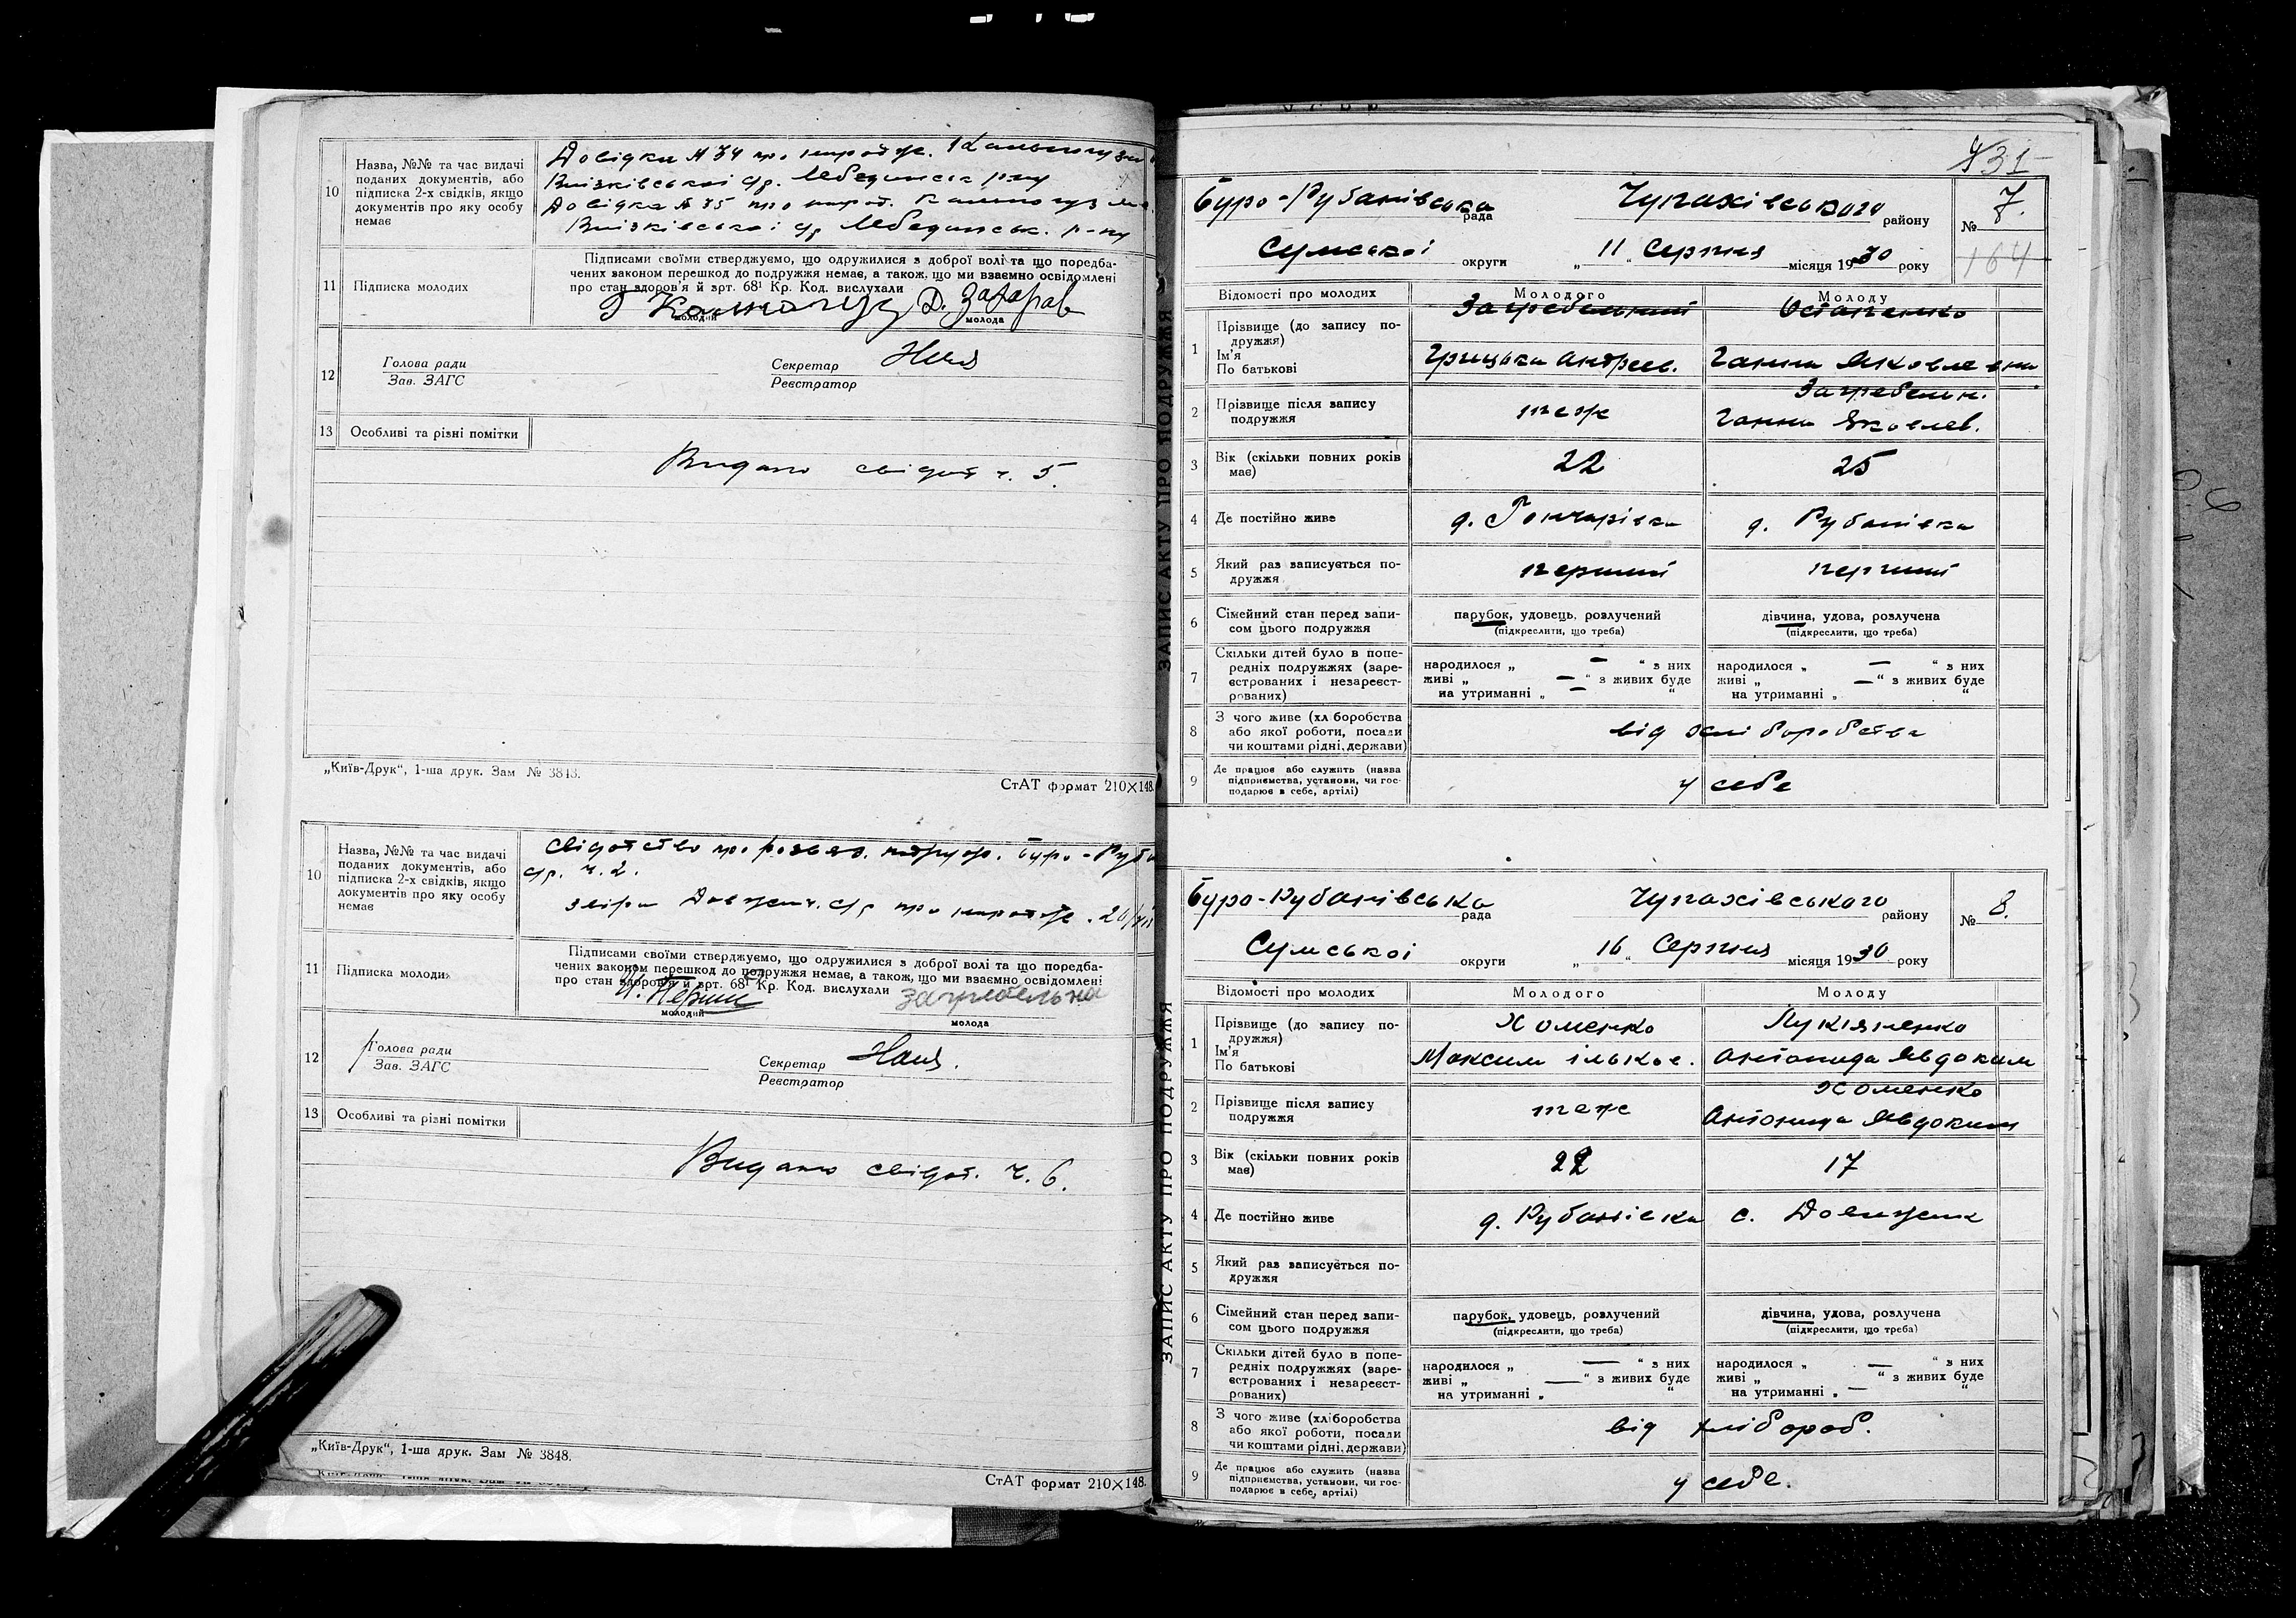 10
Назва, №№ та час видачі
поданих документів, або
підписка 2-х свідків, якщо
документів про яку особу
немає
Довідка № 74 про народж.
Довідка № 75 про народ.
11
Підписка молодих
Підписами своїми стверджуємо, що одружилися з доброї волі та що поредба-
чених законом перешкод до подружжя немає, а також, що ми взаємно освідомлені
про стан здоров'я й арт. 68¹ Кр. Код. вислухали
молодий
молода
12
Голова ради
Зав. ЗАГС
Секретар
Реєстратор
13
Особливі та різні помітки
Видано свідот ч. 5.
„Київ-Друк“, 1-ша друк. Зам № 3848.
СтАТ формат 210×148.
10
Назва, №№ та час видачі
поданих документів, або
підписка 2-х свідків, якщо
документів про яку особу
немає
свідотство про
с/р. ч. 2.
11
Підписка молодих
Підписами своїми стверджуємо, що одружилися з доброї волі та що поредба-
чених законом перешкод до подружжя немає, а також, що ми взаємно освідомлені
про стан здоров'я й арт. 68¹ Кр. Код. вислухали
загребельна
молодий
молода
12
Голова ради
Зав. ЗАГС
Секретар
Реєстратор
13
Особливі та різні помітки
Видано свідот. ч. 6.
„Київ-Друк“, 1-ша друк. Зам № 3848.
СтАТ формат 210×148.
ЗАПИС АКТУ ПРО ПОДРУЖЖЯ
31
Буро-Рубанівська рада Чупахівського району № 7.
Сумської округи „ 11 “ Серпня місяця 1930 року
164
Відомості про молодих Молодого Молоду
Загребельний Остапенко
1
Прізвище (до запису по-
дружжя)
Ім'я
По батькові
Грицько Андреев. Ганна Яковлевна
2
Прізвище після запису
подружжя
теж
Загребельн.
Ганна Яковлев.
3
Вік (скільки повних років
має)
22 25
4
Де постійно живе
д. Гончарівка д. Рубанівка
5
Який раз записується по-
дружжя
перший перший
6
Сімейний стан перед запи-
сом цього подружжя
парубок, удовець, розлучений
(підкреслити, що треба)
дівчина, удова, розлучена
(підкреслити, що треба)
7
Скільки дітей було в попе-
редніх подружжях (заре-
єстрованих і незареєст-
рованих)
народилося „ — “ з них
живі „ — “ з живих буде
на утриманні „ — “
народилося „ — “ з них
живі „ — “ з живих буде
на утриманні „ “
8
З чого живе (хліборобства
або якої роботи, посади
чи коштами рідні, держави)
від хліборобства
9
Де працює або служить (назва
підприємства, установи, чи гос-
подарює в себе, артілі)
у себе
ЗАПИС АКТУ ПРО ПОДРУЖЖЯ
Буро-Рубанівська рада Чупахівського району № 8.
Сумської округи „ 16 “ Серпня місяця 1930 року
Відомості про молодих Молодого Молоду
1
Прізвище (до запису по-
дружжя)
Ім'я
По батькові
Хоменко Лукіяненко
Максим Ільков. Антонида Явдоким
2
Прізвище після запису
подружжя
теж
Хоменко
Антонида Явдоким
3
Вік (скільки повних років
має)
22 17
4
Де постійно живе
д. Рубанівка с. Довжик
5
Який раз записується по-
дружжя
6
Сімейний стан перед запи-
сом цього подружжя
парубок, удовець, розлучений
(підкреслити, що треба)
дівчина, удова, розлучена
(підкреслити, що треба)
7
Скільки дітей було в попе-
редніх подружжях (заре-
єстрованих і незареєст-
рованих)
народилося „ — “ з них
живі „ — “ з живих буде
на утриманні „ “
народилося „ — “ з них
живі „ “ з живих буде
на утриманні „ — “
8
З чого живе (хліборобства
або якої роботи, посади
чи коштами рідні, держави)
від хлібороб.
9
Де працює або служить (назва
підприємства, установи, чи гос-
подарює в себе, артілі)
у себе.